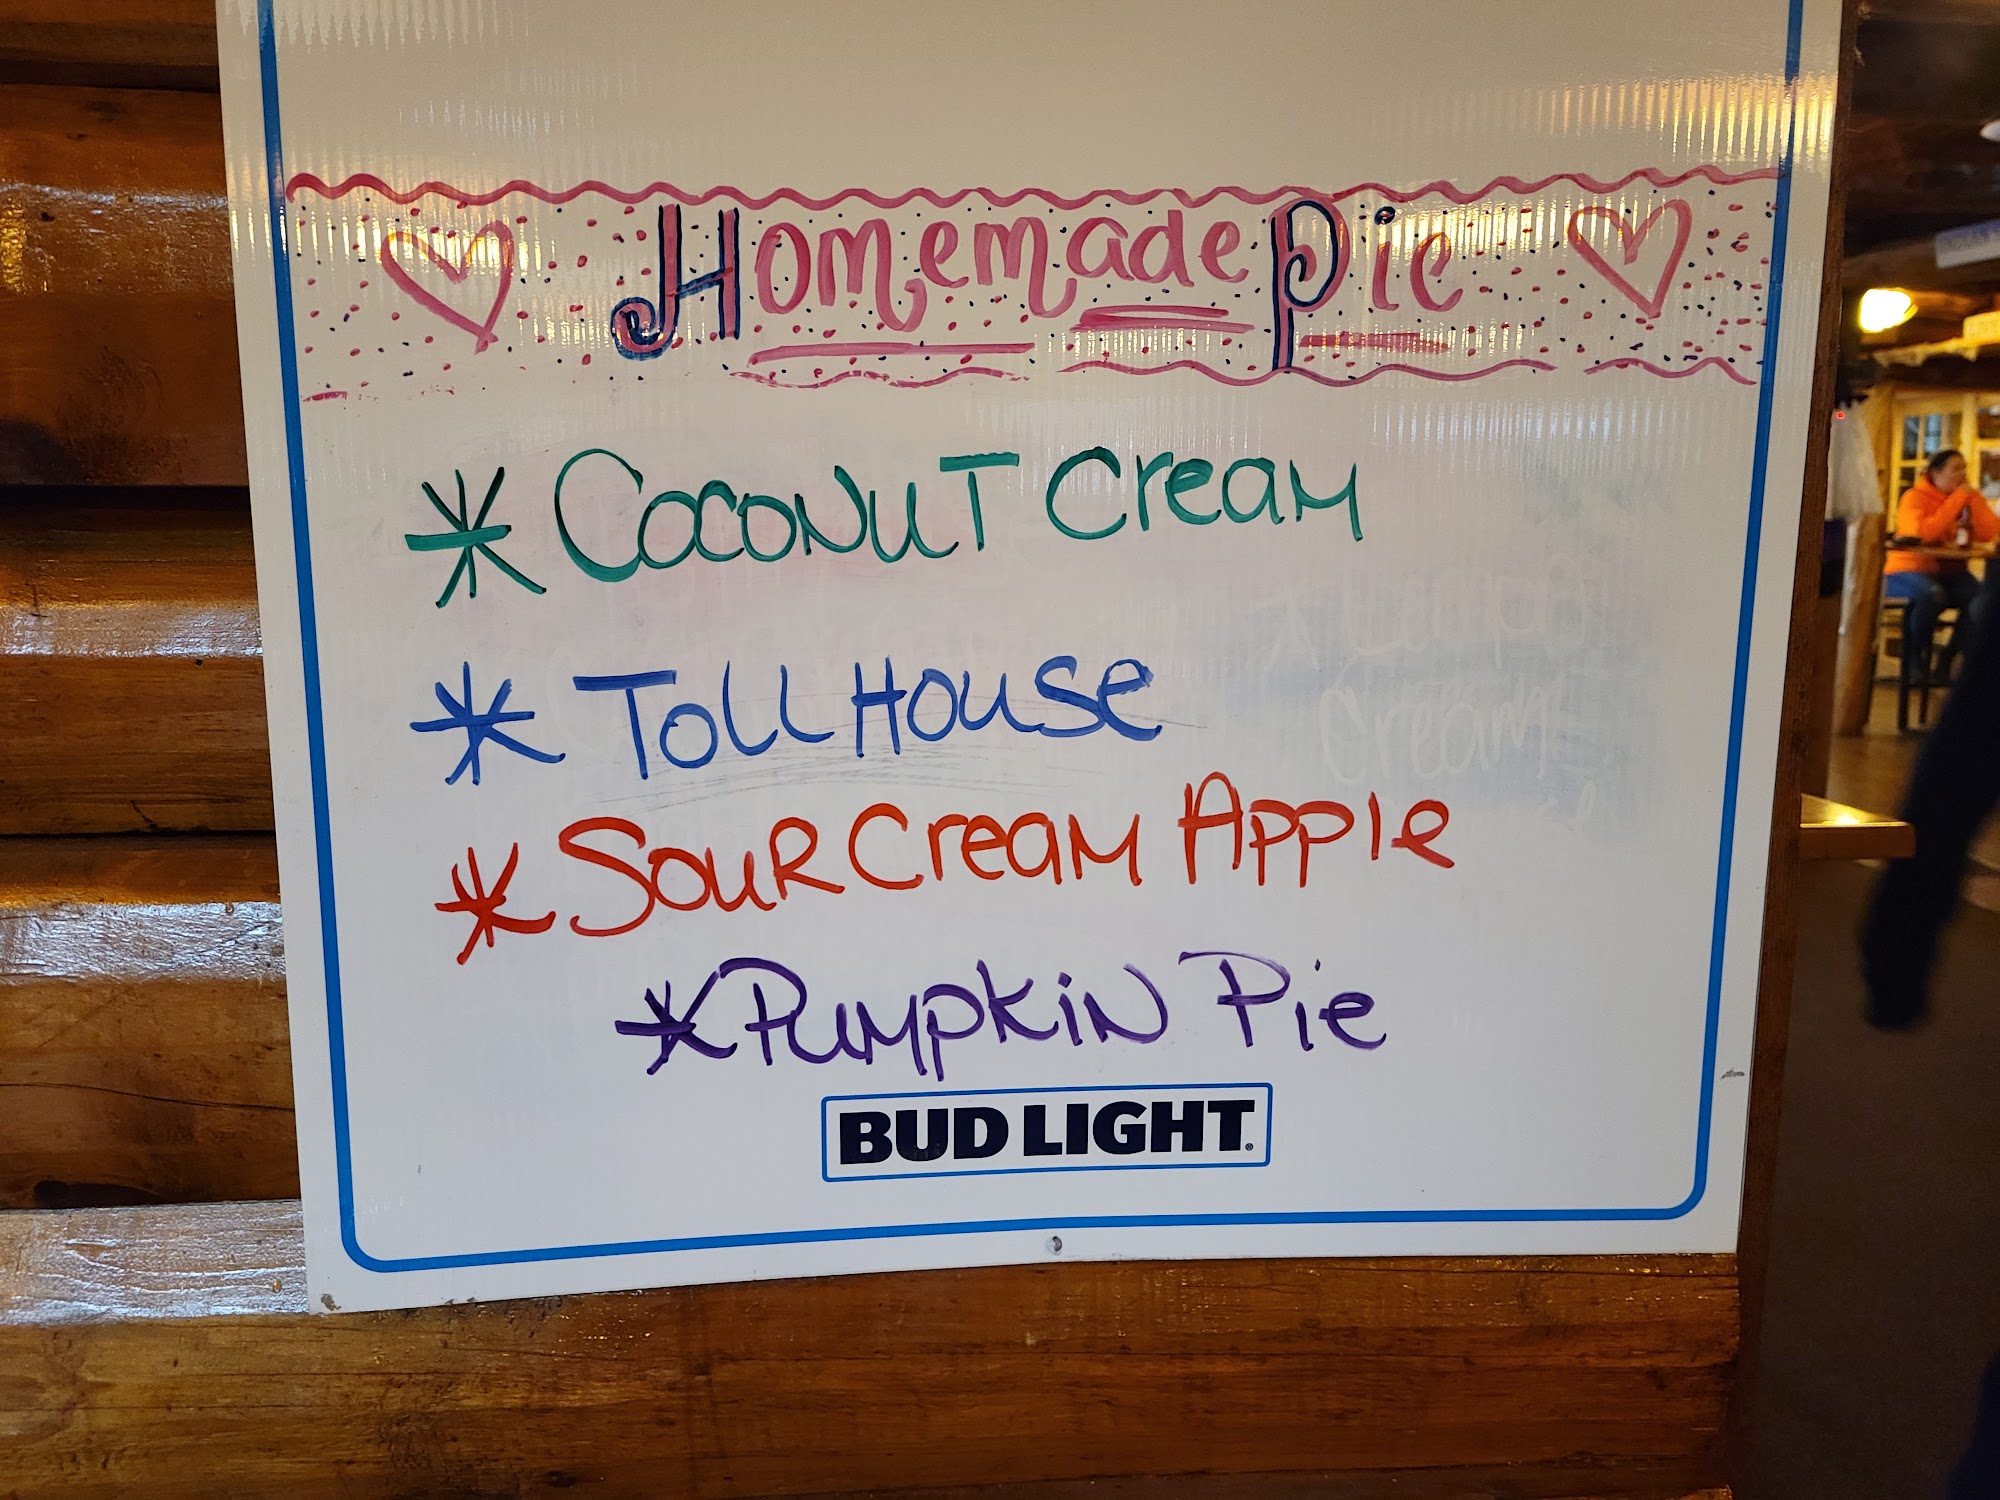 Homemade Pie
* Coconut Cream
* Toll House
* Sour Cream Apple
* Pumpkin Pie
BUD LIGHT